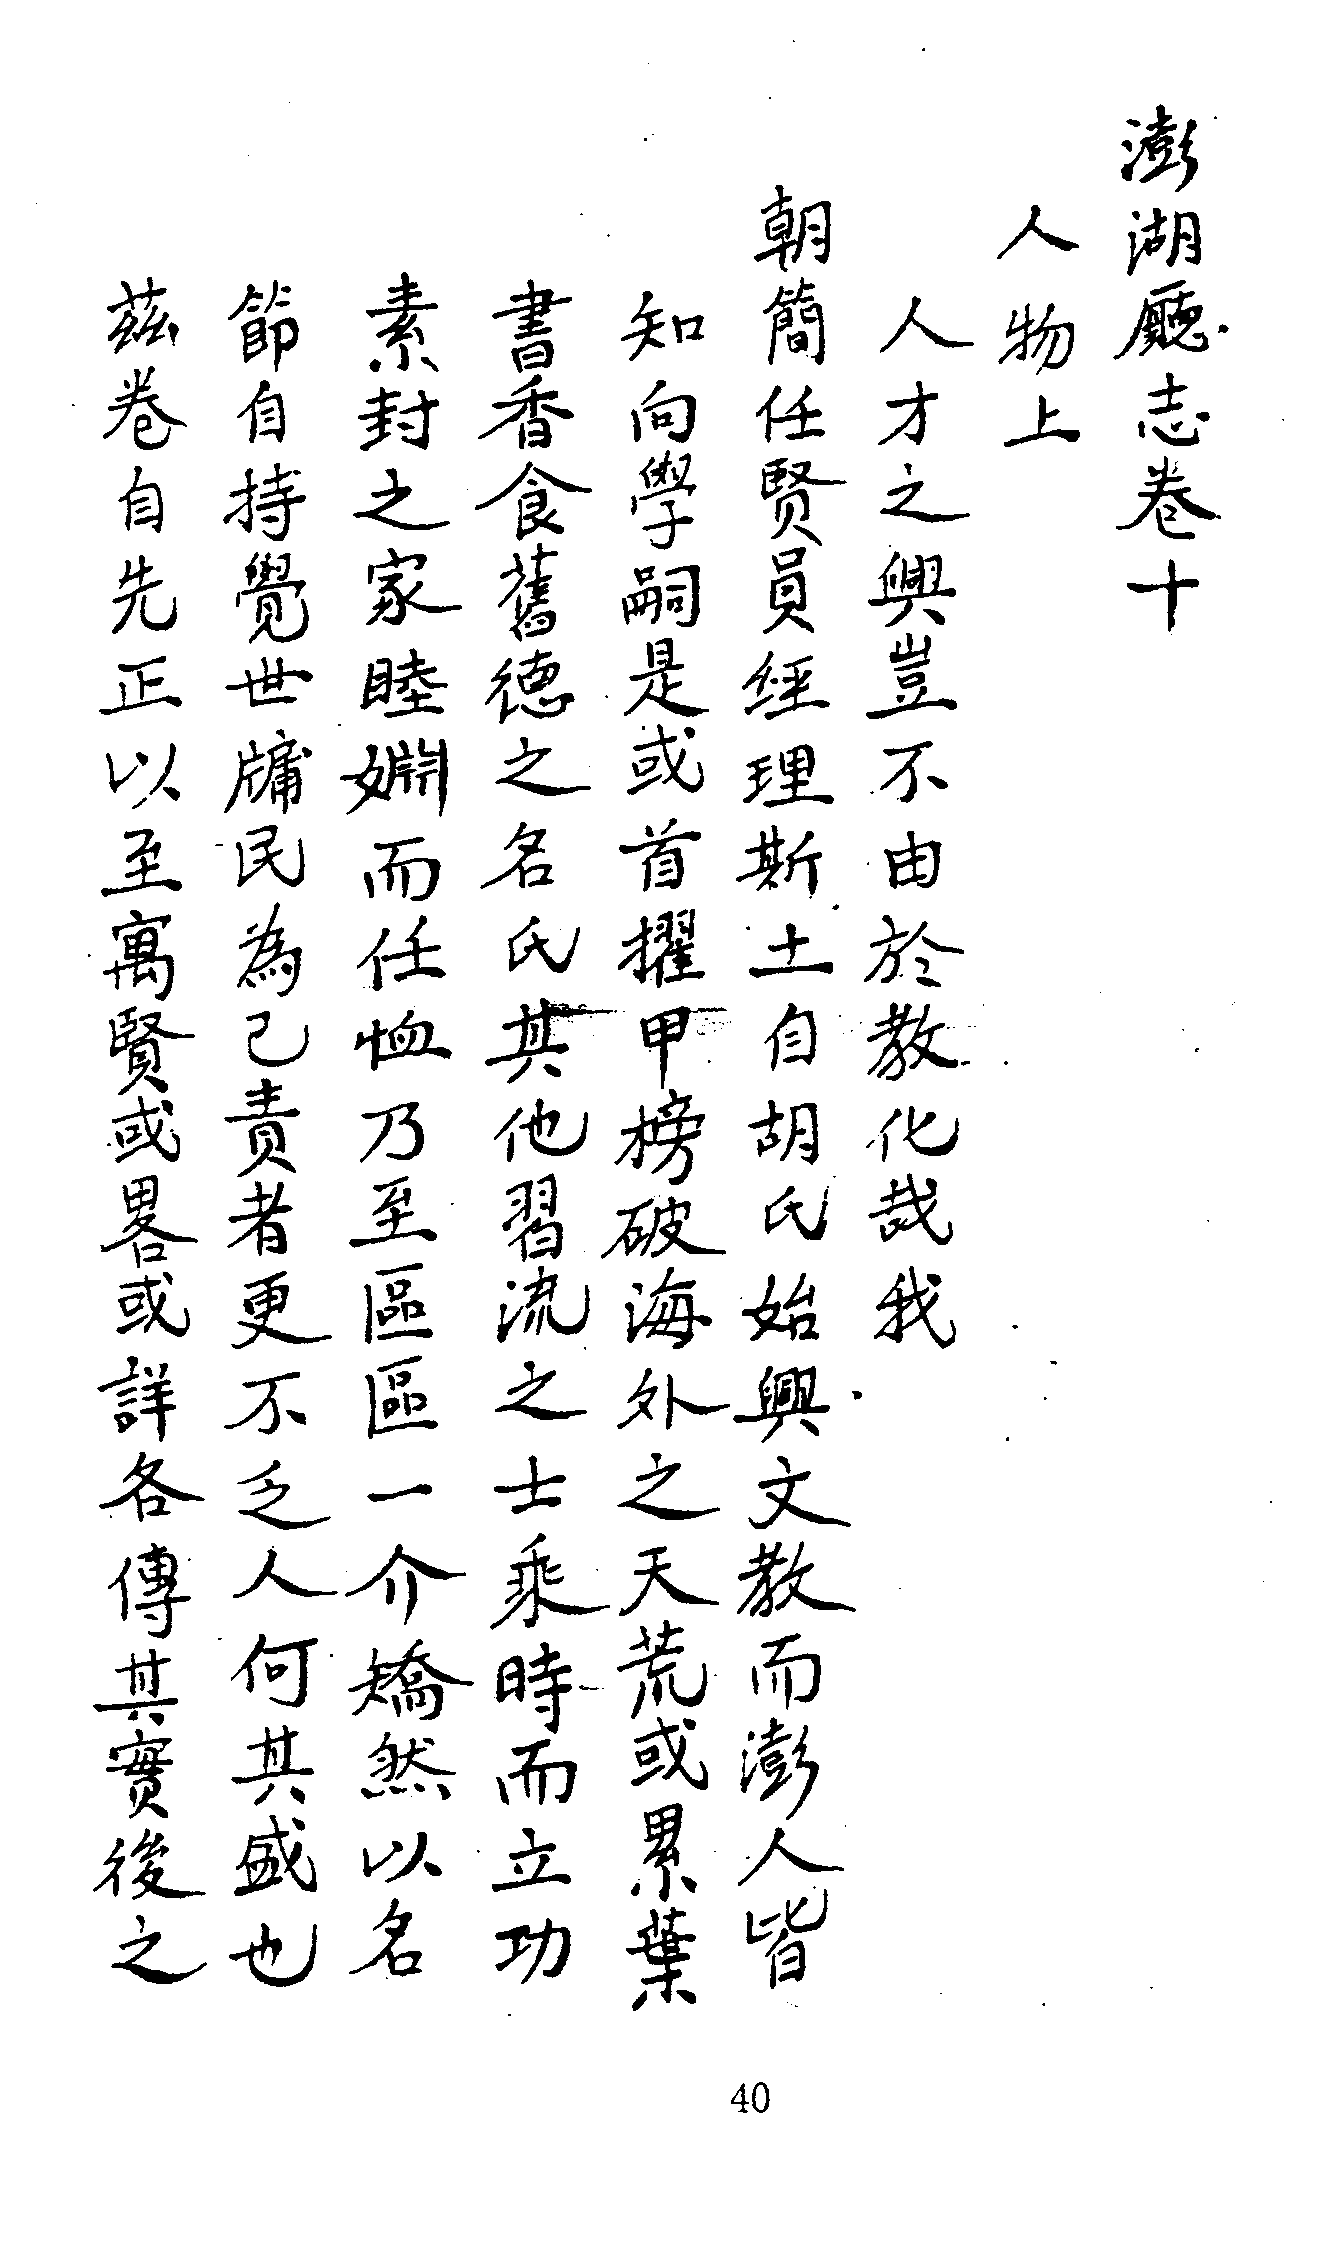 澎湖廳志卷十
人物上
人才之興豈不由於教化哉我
朝簡任賢員經理斯土自胡氏始興文教而澎人皆
知向學嗣是或首擢甲榜破海外之天荒或累葉
書香食舊德之名氏其他習流之士乘時而立功
素封之家睦婣而任恤乃至區區一介矯然以名
節自持覺世牗民為己責者更不乏人何其盛也
茲卷自先正以至寓賢或畧或詳各傳其實後之
40